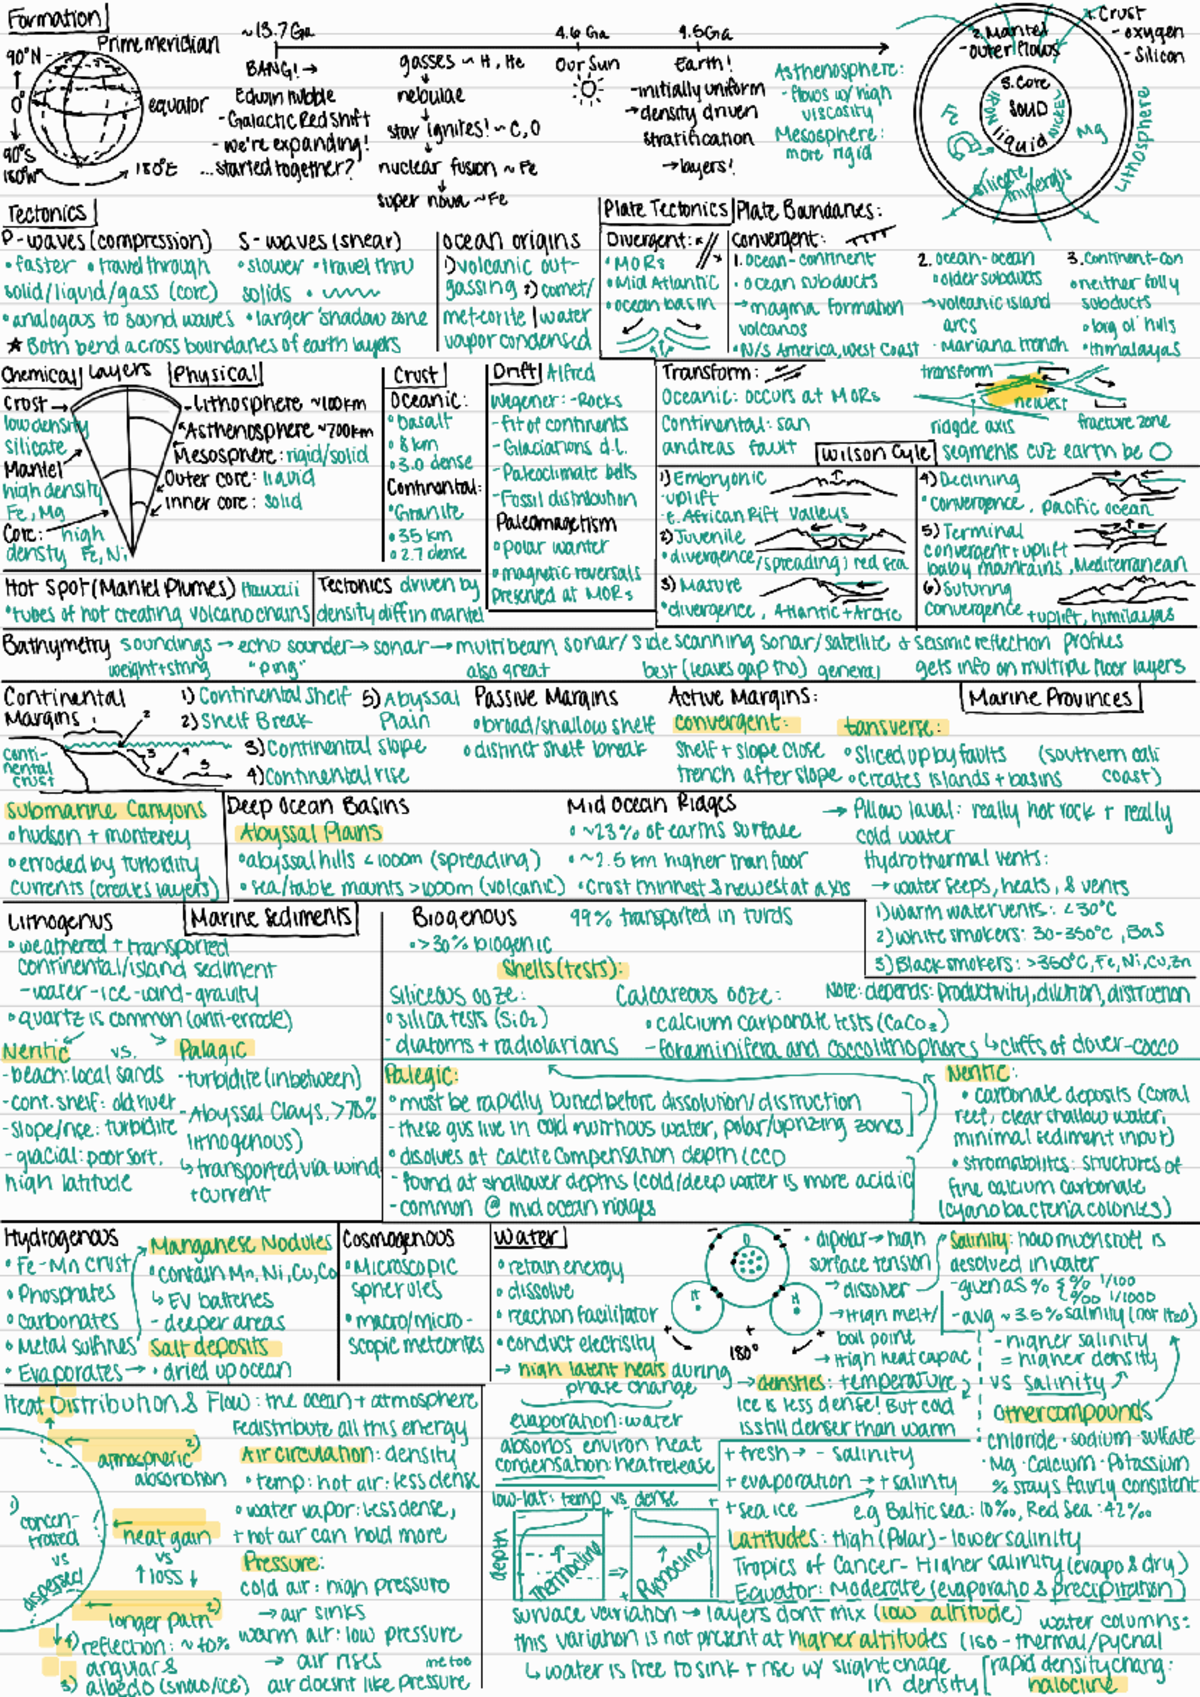 Formation
90°N
0°
90°S
180°W
180°E
Prime meridian
equator
~13.7 Ga
BANG! →
Edwin Hubble
- Galactic Red shift
- we're expanding!
...started together?
gasses ~ H, He
nebulae
star ignites! ~ C, O
nuclear fusion ~ Fe
super nova ~ Fe
4.6 Ga
Our Sun
4.5 Ga
Earth!
- initially uniform
→ density driven
stratification
→ layers!
Asthenosphere:
- flows w/ high
viscosity
Mesosphere:
more rigid
1. Crust
- oxygen
- Silicon
2. Mantel
- outer flows
3. Core
solid
liquid
IRON
NICKEL
Fe
Mg
silicate minerals
Lithosphere
Tectonics
P-waves (compression)
• faster • travel through
solid/liquid/gass (core)
• analogous to sound waves
★ Both bend across boundaries of earth layers
S-waves (shear)
• slower • travel thru
solids •
• larger shadow zone
ocean origins
1) volcanic out-
gassing 2) comet/
meteorite | water
vapor condensed
Plate Tectonics
Divergent:
• MORs
• Mid Atlantic
• ocean basin
Plate Boundaries:
Convergent:
1. ocean-continent
• ocean subducts
→ magma formation
volcanos
• N/S America, West Coast
2. ocean-ocean
• older subducts
→ volcanic island
arcs
- Mariana trench
3. continent-con
• neither fully
subducts
• big ol' hills
• Himalayas
Chemical Layers Physical
Crust →
low density
silicate
Mantel
high density
Fe, Mg
Core: high
density Fe, Ni
Lithosphere ~100km
Asthenosphere ~700km
Mesosphere: rigid/solid
Outer core: liquid
inner core: solid
Crust
Oceanic:
• basalt
• 8 km
• 3.0 dense
Continental:
• Granite
• 35 km
• 2.7 dense
Drift Alfred
Wegener: - Rocks
- Fit of continents
- Glaciations d.l.
- Paleoclimate belts
- Fossil distribution
Paleomagetism
• polar wanter
• magnetic reversals
preserved at MORs
Transform:
Oceanic: occurs at MORs
Continental: san
andreas fault
transform
newest
ridgde axis
fracture zone
Wilson Cyle segments cuz earth be O
1) Embryonic
- uplift
- E. African Rift Valleys
2) Juvenile
• divergence/spreading, red sea
3) Mature
• divergence, Atlantic + Arctic
4) Declining
• convergence, pacific ocean
5) Terminal
convergent + uplift
baby mountains, Mediterranean
6) Suturing
convergence + uplift, himilayas
Hot Spot (Mantel Plumes) Hawaii
• tubes of hot creating volcano chains
Tectonics driven by
density diff in mantel
Bathymetry soundings → echo sounder → sonar → multibeam sonar / side scanning sonar / satellite & seismic reflection profiles
weight + string "ping" also great best (leaves gap tho) general gets info on multiple floor layers
Continental
Margins
conti-
nental
crust
2
3
4
5
1) Continental Shelf
2) Shelf Break
3) Continental slope
4) Continental rise
5) Abyssal
Plain
Passive Margins
• broad/shallow shelf
• distinct shelf break
Active Margins:
convergent:
shelf + slope close
trench after slope
tansverse:
• Sliced up by faults (southern cali
• creates islands + basins coast)
Marine Provinces
Submarine Canyons
• hudson + monterey
• erroded by turbidity
currents (creates layers)
Deep Ocean Basins
Abyssal Plains
• abyssal hills < 1000m (spreading)
• sea/table mounts > 1000m (volcanic)
Mid Ocean Ridges
• ~23% of earths surface
• ~2.5 km higher than floor
• Crust thinnest & newest at axis
→ Pillow laval: really hot rock + really
cold water
Hydrothermal vents:
→ water seeps, heats, & vents
1) warm water vents: < 30°C
2) white smokers: 30-350°C, BaS
3) Black smokers: > 350°C, Fe, Ni, Cu, Zn
Marine Sediments
Lithogenus
• weathered + transported
continental/island sediment
- water - ice - wind - gravity
• quartz is common (anti-errode)
Neritic vs. Palagic
- beach: local sands
- cont. shelf: old river
- slope/rise: turbidite
- glacial: poor sort,
high latitude
- turbidite (inbetween)
- Abyssal Clays, >70%
lithogenous)
↳ transported via wind
+ current
Biogenous 99% transported in turds
• >30% biogenic
Shells (tests):
Siliceous ooze:
• silica tests (SiO₂)
- diatoms + radiolarians
Calcareous ooze:
• calcium carbonate tests (CaCo₃)
- foraminifera and coccolithophores ↳ cliffs of dover - cocco
Note: depends: productivity, dilution, distruction
Palegic:
• must be rapidly buried before dissolution/distruction
- these guys live in cold nutrihous water, polar/uprizing zones
• disolves at Calcite Compensation depth (CCD
- found at shallower depths (cold/deep water is more acidic
- common @ mid ocean ridges
Neritic:
• carbonate deposits (coral
reef, clear shallow water,
minimal sediment input)
• stromatolites: structures of
fine calcium carbonate
(cyano bacteria colonies)
Hydrogenous
• Fe-Mn crust
• Phosphates
• carbonates
• Metal sulfines
• Evaporates →
Manganese Nodules
• contain Mn, Ni, Cu, Co
↳ EV batteries
- deeper areas
Salt deposits
• dried up ocean
Cosmogenous
• Microscopic
spherules
• macro/micro-
scopic meteorites
Water
• retain energy
• dissolve
• reaction facilitator
• conduct electrisity
→ high latent heats during
phase change
evaporation: water
absorbs environ heat
condensation: heat release
O
H
H
180°
• dipolar → high
surface tension
→ dissolver
→ High melt/
boil point
→ High heat capac
→ densities: temperature,
ice is less dense! But cold
is still denser than warm
Salinity: how much stoff is
desolved in water
- given as % & ‰ 1/100
1/1000
- avg ~ 3.5% salinity (not H20)
- higher salinity
= higher density
vs salinity
Other compounds
chloride · sodium · sulfate
· Mg · Calcium · Potassium
% stays fairly consistent
+ fresh → - salinity
+ evaporation → + salinity
+ sea ice
e.g Baltic sea: 10‰, Red Sea: 42‰
Latitudes: High (Polar) - lower salinity
Tropics of Cancer - Higher salinity (evapo & dry)
Equator: Moderate (evaporatio & precipitation)
low-lat: temp vs dense
depth
Thermocline
Pycnocline
survace variation → layers dont mix (low altitude)
this variation is not present at higher altitudes (iso-thermal/pycnal
↳ water is free to sink + rise w/ slight chage
in density
water columns:
rapid density chang:
halocline
Heat Distribution & Flow: the ocean + atmosphere
redistribute all this energy
1)
concen-
trated
vs
dispersed
2)
atmospheric
absorbtion
heat gain
vs
↑ loss ↓
longer path
4) reflection: ~40%
angular &
3) albedo (snow/ice)
Air circulation: density
• temp: hot air: less dense
• water vapor: less dense,
+ hot air can hold more
Pressure:
cold air: high pressure
→ air sinks
warm air: low pressure
→ air rises me too
air doesnt like pressure